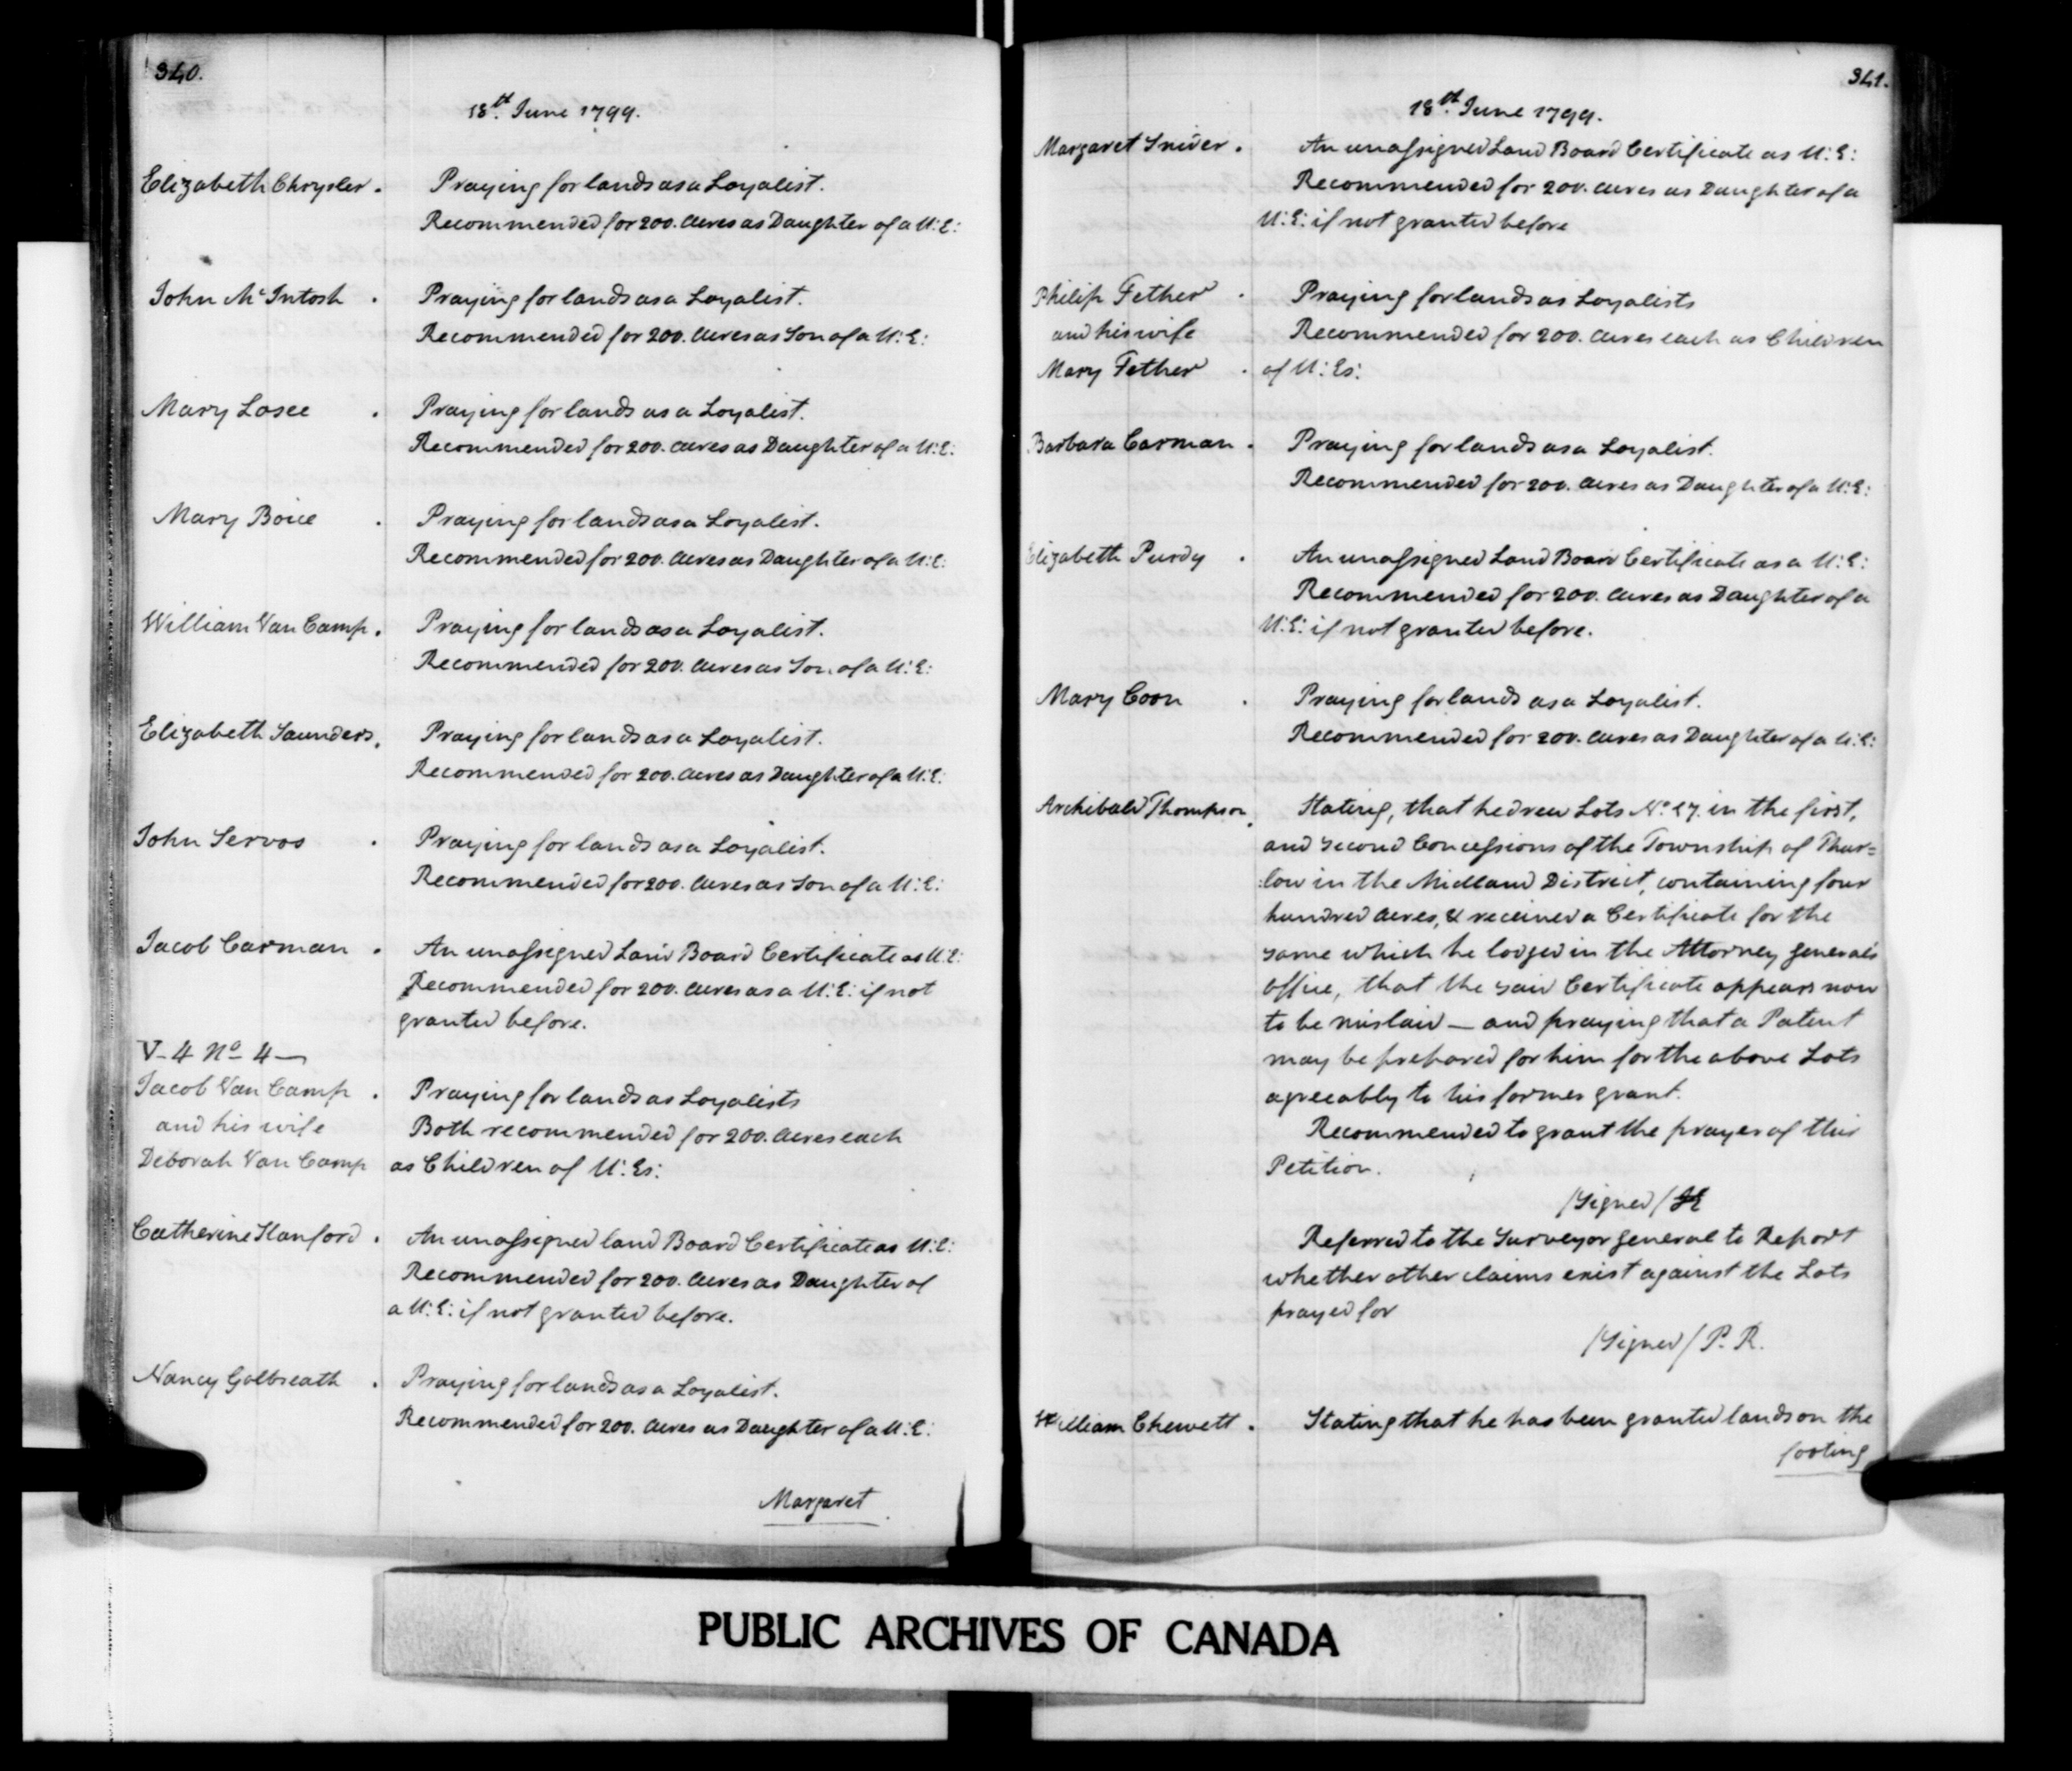 340.
18th. June 1799.
Elizabeth Chrysler. Praying for lands as a Loyalist.
Recommended for 200. Acres as Daughter of a U:E:
John McIntosh . Praying for lands as a Loyalist.
Recommended for 200. Acres as Son of a U:E:
Mary Losee . Praying for lands as a Loyalist.
Recommended for 200. Acres as Daughter of a U:E:
Mary Boice . Praying for lands as a Loyalist.
Recommended for 200. Acres as Daughter of a U:E:
William Van Camp. Praying for lands as a Loyalist.
Recommended for 200. Acres as Son of a U:E:
Elizabeth Saunders. Praying for lands as a Loyalist.
Recommended for 200. Acres as Daughter of a U:E:
John Servos . Praying for lands as a Loyalist.
Recommended for 200. Acres as Son of a U:E:
Jacob Carman . An unassigned Land Board Certificate as U:E:
Recommended for 200. Acres as a U:E: if not
granted before.
V-4 No 4—
Jacob Van Camp . Praying for lands as Loyalists
and his wife Both recommended for 200. Acres each
Deborah Van Camp as Children of U:Es:
Catherine Stanford . An unassigned land Board Certificate as U:E:
Recommended for 200. Acres as Daughter of
a U:E: if not granted before.
Nancy Golbreath . Praying for lands as a Loyalist.
Recommended for 200. Acres as Daughter of a U:E:
Margaret
341.
18th. June 1799.
Margaret Snider . An unassigned Land Board Certificate as U:E:
Recommended for 200. Acres as Daughter of a
U:E: if not granted before
Philip Fether . Praying for lands as Loyalists
and his wife Recommended for 200. Acres each as Children
Mary Fether . of U:Es:
Barbara Carman . Praying for lands as a Loyalist.
Recommended for 200. Acres as Daughter of a U:E:
Elizabeth Purdy . An unassigned Land Board Certificate as a U:E:
Recommended for 200. Acres as Daughter of a
U:E: if not granted before.
Mary Coon . Praying for lands as a Loyalist.
Recommended for 200. Acres as Daughter of a U:E:
Archibald Thompson. Stating, that he drew Lots No. 27. in the first,
and second Concessions of the Township of Thur=
:low in the Midland District, containing four
hundred Acres, & received a Certificate for the
same which he lodged in the Attorney General's
Office, that the said Certificate appears now
to be mislaid — and praying that a Patent
may be prepared for him for the above Lots
agreeably to his former grant.
Recommended to grant the prayer of this
Petition.
/Signed/ JE
Referred to the Surveyor General to Report
whether other claims exist against the Lots
prayed for
/Signed/ P. R.
William Chewett . Stating that he has been granted lands on the
footing
PUBLIC ARCHIVES OF CANADA